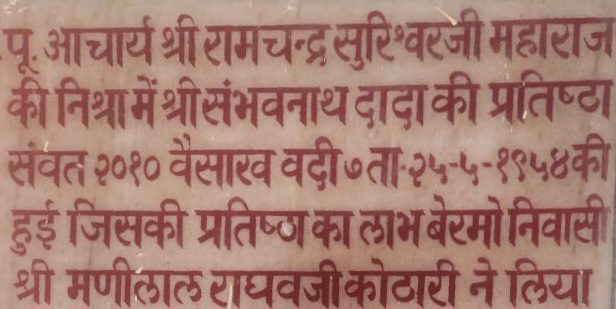 पू. आचार्य श्री रामचन्द्र सुरिश्वरजी महाराज
की निश्रा में श्री संभवनाथ दादा की प्रतिष्ठा
संवत २०१० वैसाख वदी ७ ता.२५-५-१९५४ की
हुई जिसकी प्रतिष्ठा का लाभ बेरमो निवासी
श्री मणीलाल राघवजी कोठारी ने लिया